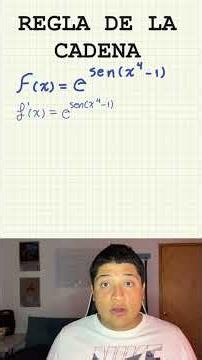 REGLA DE LA
CADENA
f(x) = e^sen(x⁴-1)
f'(x) = e^sen(x⁴-1)